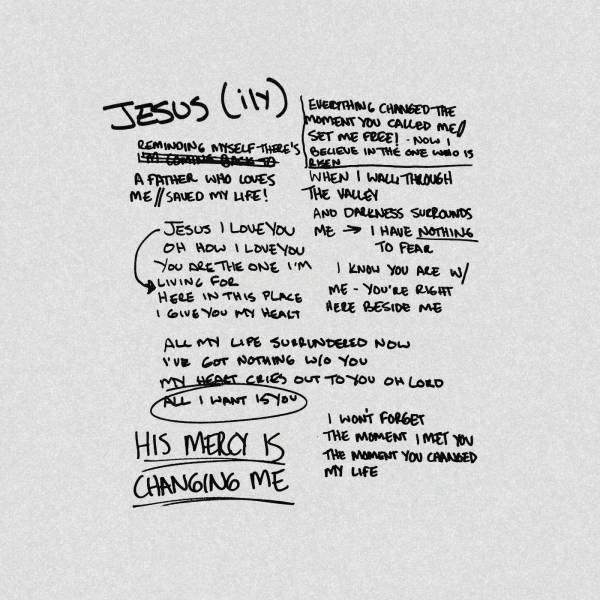 JESUS (ily)
REMINDING MYSELF THERE'S
I'M COMING BACK TO
A FATHER WHO LOVES
ME // SAVED MY LIFE!
EVERYTHING CHANGED THE
MOMENT YOU CALLED ME //
SET ME FREE! - NOW I
BELIEVE IN THE ONE WHO IS
RISEN
WHEN I WALK THROUGH
THE VALLEY
AND DARKNESS SURROUNDS
ME → I HAVE NOTHING
TO FEAR
I KNOW YOU ARE W/
ME - YOU'RE RIGHT
HERE BESIDE ME
JESUS I LOVE YOU
OH HOW I LOVE YOU
YOU ARE THE ONE I'M
LIVING FOR
HERE IN THIS PLACE
I GIVE YOU MY HEART
ALL MY LIFE SURRUNDERED NOW
I'VE GOT NOTHING W/O YOU
MY HEART CRIES OUT TO YOU OH LORD
ALL I WANT IS YOU
HIS MERCY IS
CHANGING ME
I WON'T FORGET
THE MOMENT I MET YOU
THE MOMENT YOU CHANGED
MY LIFE